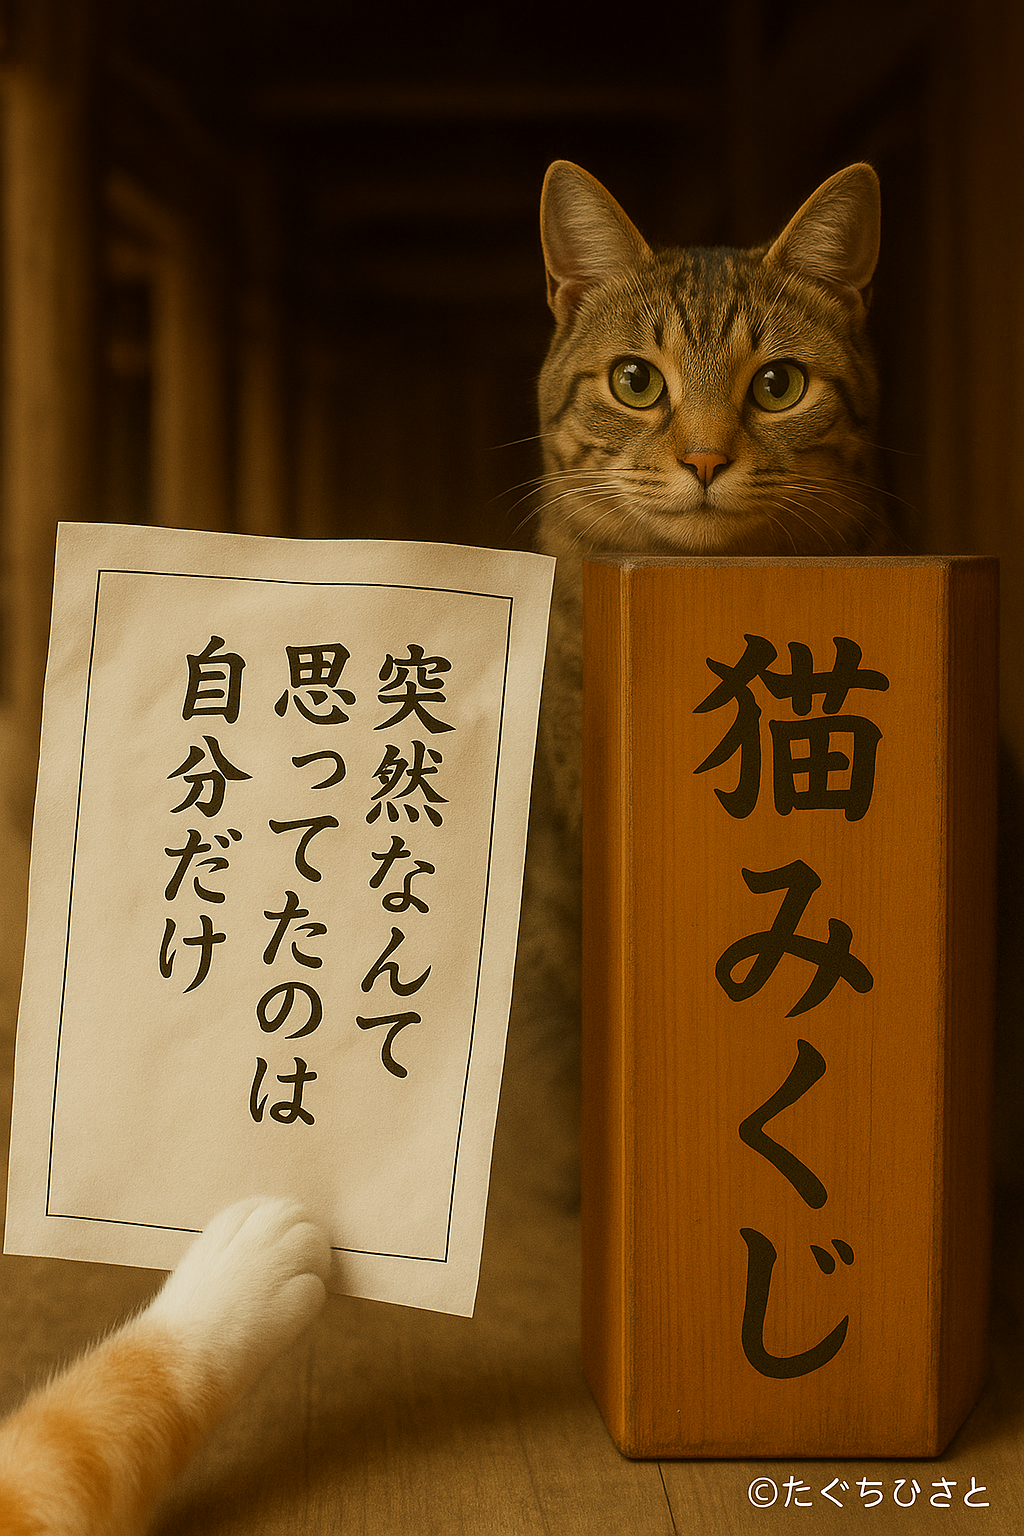 突然なんて
思ってたのは
自分だけ
猫みくじ
©たぐちひさと